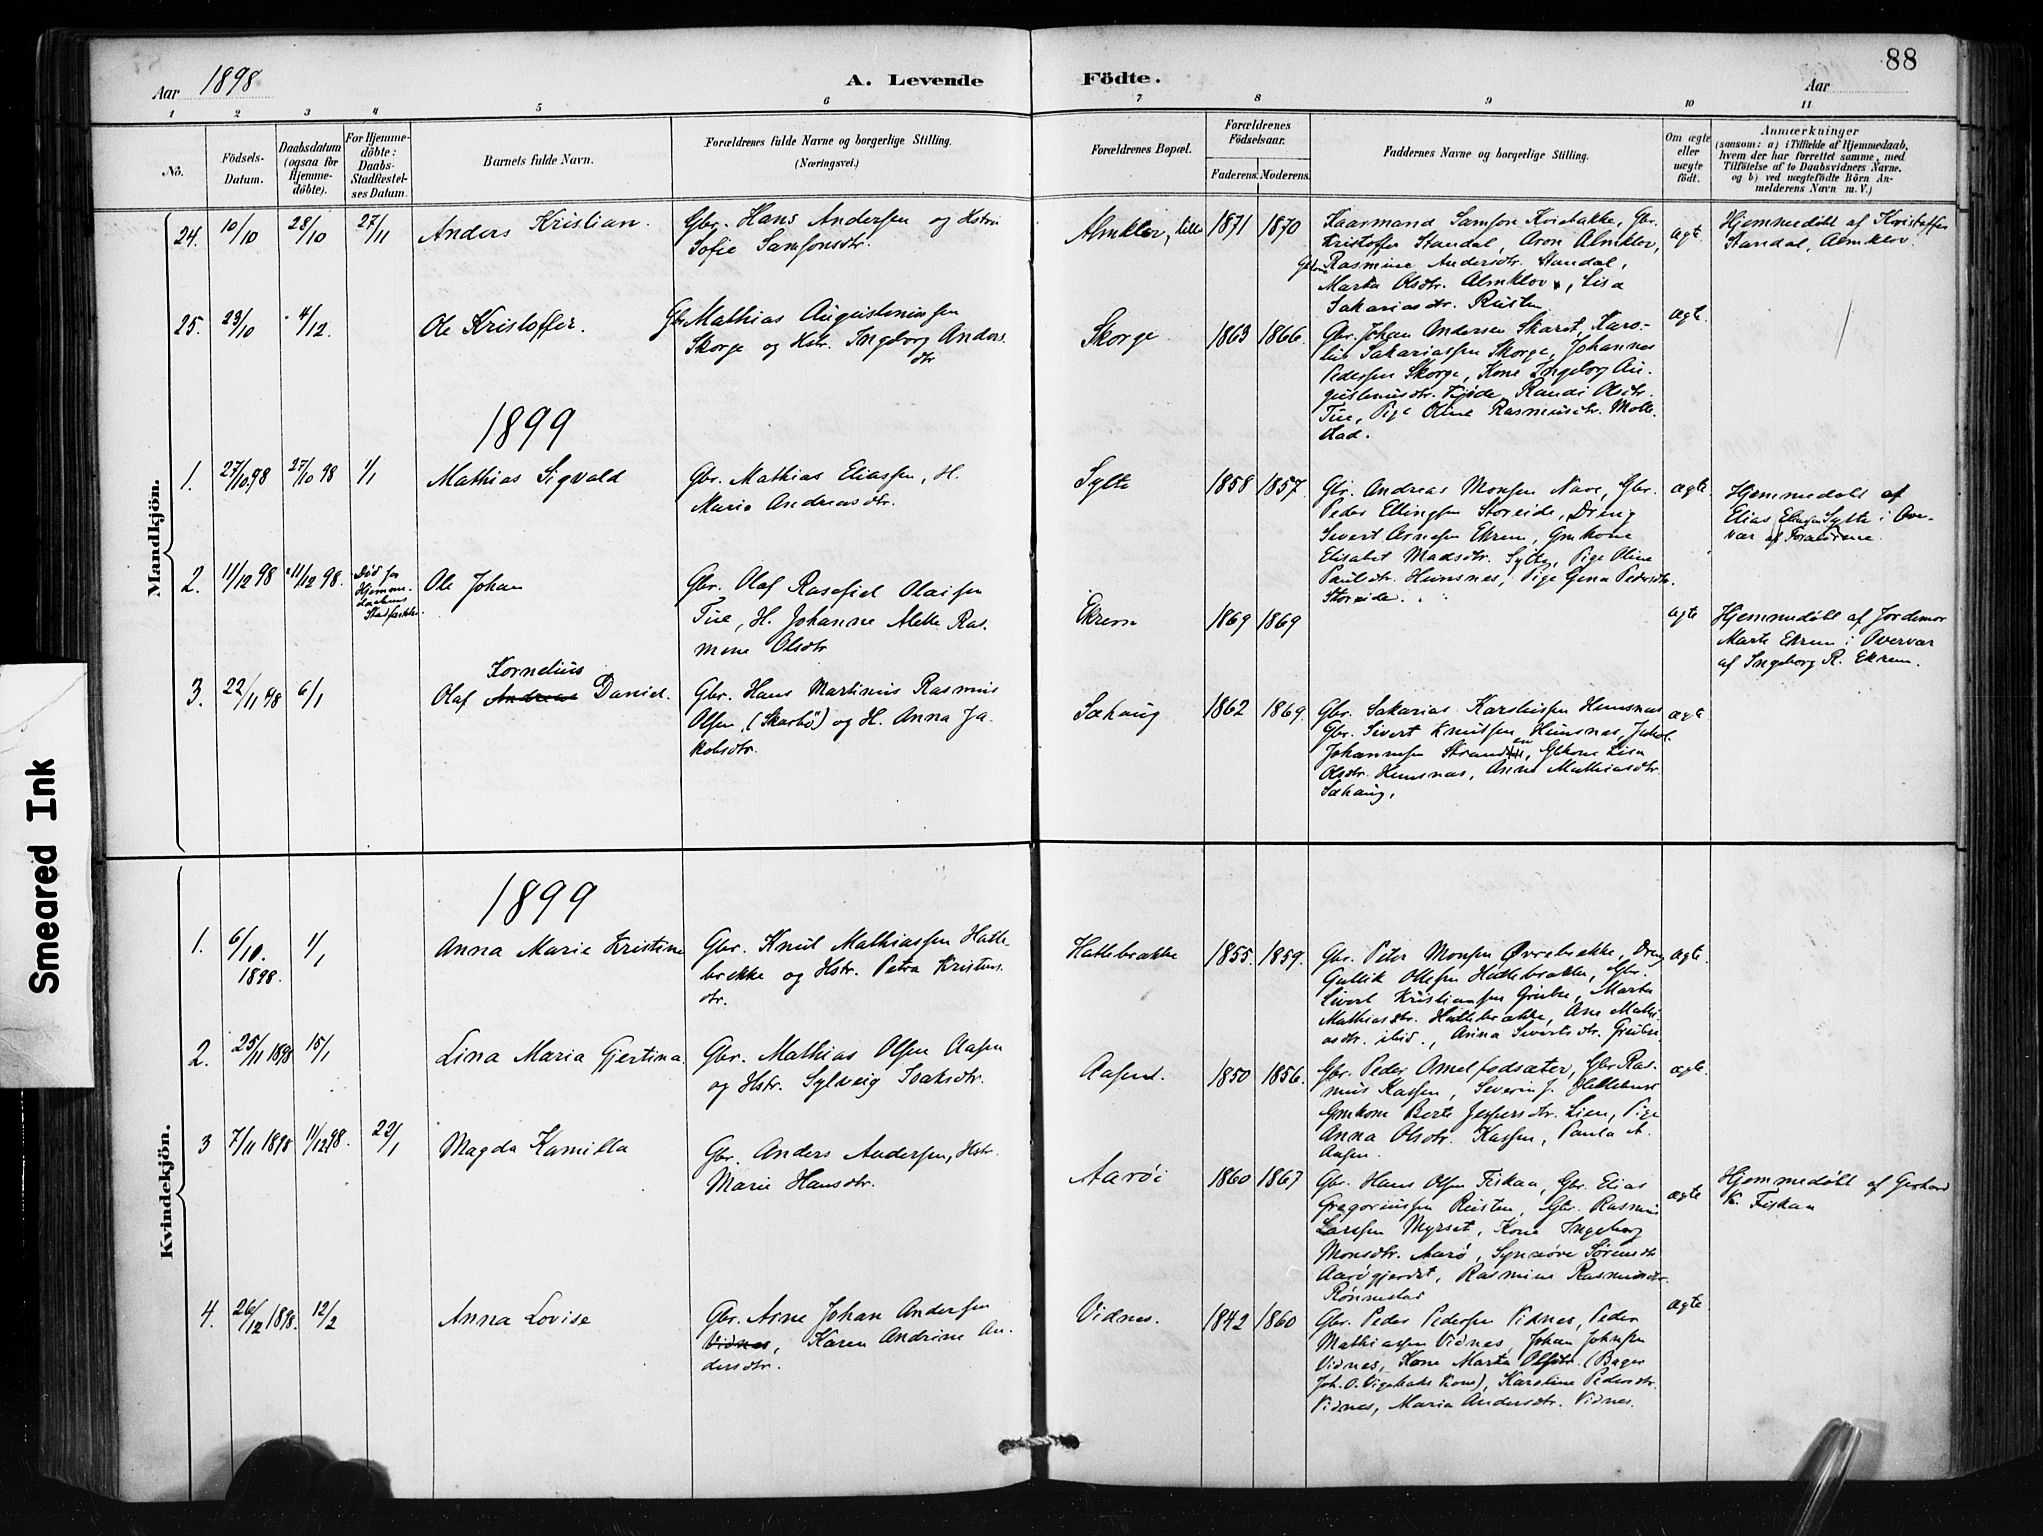 88
Aar 1898
A. Levende
Födte.
Aar
1 2 3 4 5 6 7 8 9 10 11
No.
Födsels-
Datum.
Daabsdatum
(ogsaa for
Hjemme-
döbte).
For Hjemme-
döbte:
Daabs-
Stadfæstel-
ses Datum.
Barnets fulde Navn.
Forældrenes fulde Navne og borgerlige Stilling.
(Næringsvei.)
Forældrenes Bopæl.
Forældrenes
Födselsaar.
Faderens. Moderens.
Faddernes Navne og borgerlige Stilling.
Om ægte
eller
uægte
födt.
Anmærkninger
(saasom: a) i Tilfælde af Hjemmedaab,
hvem der har forrettet samme, med
Tilföielse af to Daabsvidners Navne.
og b) ved uægtefödte Börn An-
melderens Navn m. V.)
Mandkjön.
24. 10/10 28/10 27/11
Anders Kristian.
Gbr. Hans Andersen og Hstr.
Sofie Samsonsdtr.
Almklov, lille 1871 1870
Kaarmand Samson Kviebakke, Gbr.
Kristoffer Standal, Aron Almklov,
Rasmine Andersdtr. Standal,
Marta Olsdtr. Almklov, Lisa
Sakariasdtr. Reiten
ægte
Hjemmedøbt af Kristoffer
Standal, Almklov.
25. 23/10 4/12.
Ole Kristoffer.
Gbr. Mathias Augustinussen
Skorge og Hstr. Ingeborg Anders
dtr
Skorge 1863 1866.
Gbr. Johan Andersen Skaret, Karo-
line Sakariassen Skorge, Johannes
Pedersen Skorge, Kone Ingeborg Au-
gustinusdtr. Fjøde, Randi Olsdtr.
Tue, Pige Oline Rasmusdtr. Molle-
stad.
ægte
1899
1. 27/10 98 27/10 98 1/1
Mathias Sigvald
Gbr. Mathias Eliassen, H.
Marie Andreasdtr.
Sylte 1858 1857.
Gbr. Andreas Monsen Nave, Gbr.
Peder Ellingsen Storeide, Dreng
Sivert Arnesen Ekrem, Gmkone
Elisabet Madsdtr. Sylte, Pige Oline
Paulsdtr. Hunsnes, Pige Gena Pedersdtr.
Storeide.
ægte
Hjemmedøbt af
Elias Eliassen Sylte i Over-
vær af Forældrene.
2. 11/12 98 11/12 98.
Død før
Hjemme-
daabens
Stadfæstelse.
Ole Johan
Gbr. Olaf Rasefiel Olaisen
Tue, H. Johanne Mette Ras-
mine Olsdtr
Ekrem 1869 1869
ægte
Hjemmedøbt af Jordemor
Marte Ekrem i Overvær
af Ingeborg R. Ekrem.
3. 22/11 98 6/1
Kornelius
Olaf Andreas Daniel.
Gbr. Hans Martinus Rasmus
Olsen (Skarbø) og H. Anna Ja-
kobsdtr.
Sæhaug 1862 1869.
Gbr. Sakarias Karstensen Hunsnes
Gbr. Sivert Knutsen Hunsnes, Jakob
Johannesen Stranden, Gbkone Lisa
Olsdtr. Hunsnes, Anne Mathiasdtr
Sæhaug,
ægte
Kvindekjön.
1899
1. 6/10. 1898. 1/1
Anna Marie Kristine
Gbr. Knut Mathiassen Hatle-
brekke og Hstr. Petra Kristens
dtr.
Hatlebrække 1855. 1859.
Gbr. Peter Monsen Øvrebrekke, Dreng
Gullik Ottesen Hatlebrække, Gbr.
Sivert Kristiansen Grubse, Marta
Mathiasdtr. Hatlebrække, Ane Mathi-
asdtr. ibid., Anna Sivertsdtr. Grubse
ægte.
2. 25/11 1898 15/1
Lina Maria Gjertina.
Gbr. Mathias Olsen Aasen
og Hstr. Sylveig Isaksdtr.
Aasen. 1850 1856.
Gbr. Peder Omelfodsæter, Gbr. Ras-
mus Kassen, Severin J. Hellebust
Gmkone Berte Jespersdtr. Lien, Pige
Anna Olsdtr. Kassen, Paula A.
Aasen.
ægte.
3 7/11 1898 11/12 98. 22/1
Magda Kamilla
Gbr. Anders Andersen, Hstr.
Marie Hansdtr.
Aarøi 1860 1867
Gbr. Hans Olsen Fiskaa, Gbr. Elias
Gregoriussen Reiten, Gbr. Rasmus
Larssen Myrset, Kone Ingeborg
Monsdtr. Aarø, Synnøve Sørensdtr
Aarøgjerdet, Rasmine Rasmusdtr.
Rønnestad
ægte
Hjemmedøbt af Gerhard
K. Fiskaa
4. 26/12 1898. 12/2
Anna Lovise
Gbr. Arne Johan Andersen
Vidnes, Karen Andrine An-
dersdtr.
Vidnes. 1842 1860
Gbr. Peder Pedersen Vidnes, Peder
Mathiassen Vidnes, Johan Johnsen
Vidnes, Kone Marta Olsdtr. (Bager
Joh. O. Vigebaks Kone), Karoline Pedersdtr.
Vidnes, Maria Andersdtr. Vidnes.
ægte
Smeared Ink